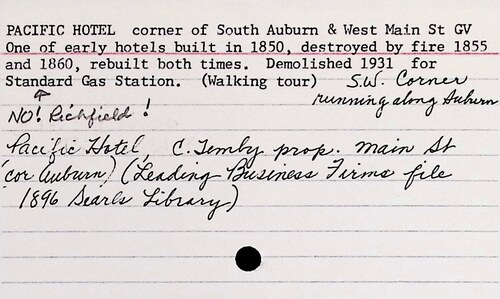 PACIFIC HOTEL corner of South Auburn & West Main St GV
One of early hotels built in 1850, destroyed by fire 1855
and 1860, rebuilt both times. Demolished 1931 for
Standard Gas Station. (Walking tour) S.W. Corner
running along Auburn
NO! Richfield!
Pacific Hotel, C. Temby prop. Main St
(cor Auburn) (Leading Business Firms file
1896 Searls Library)